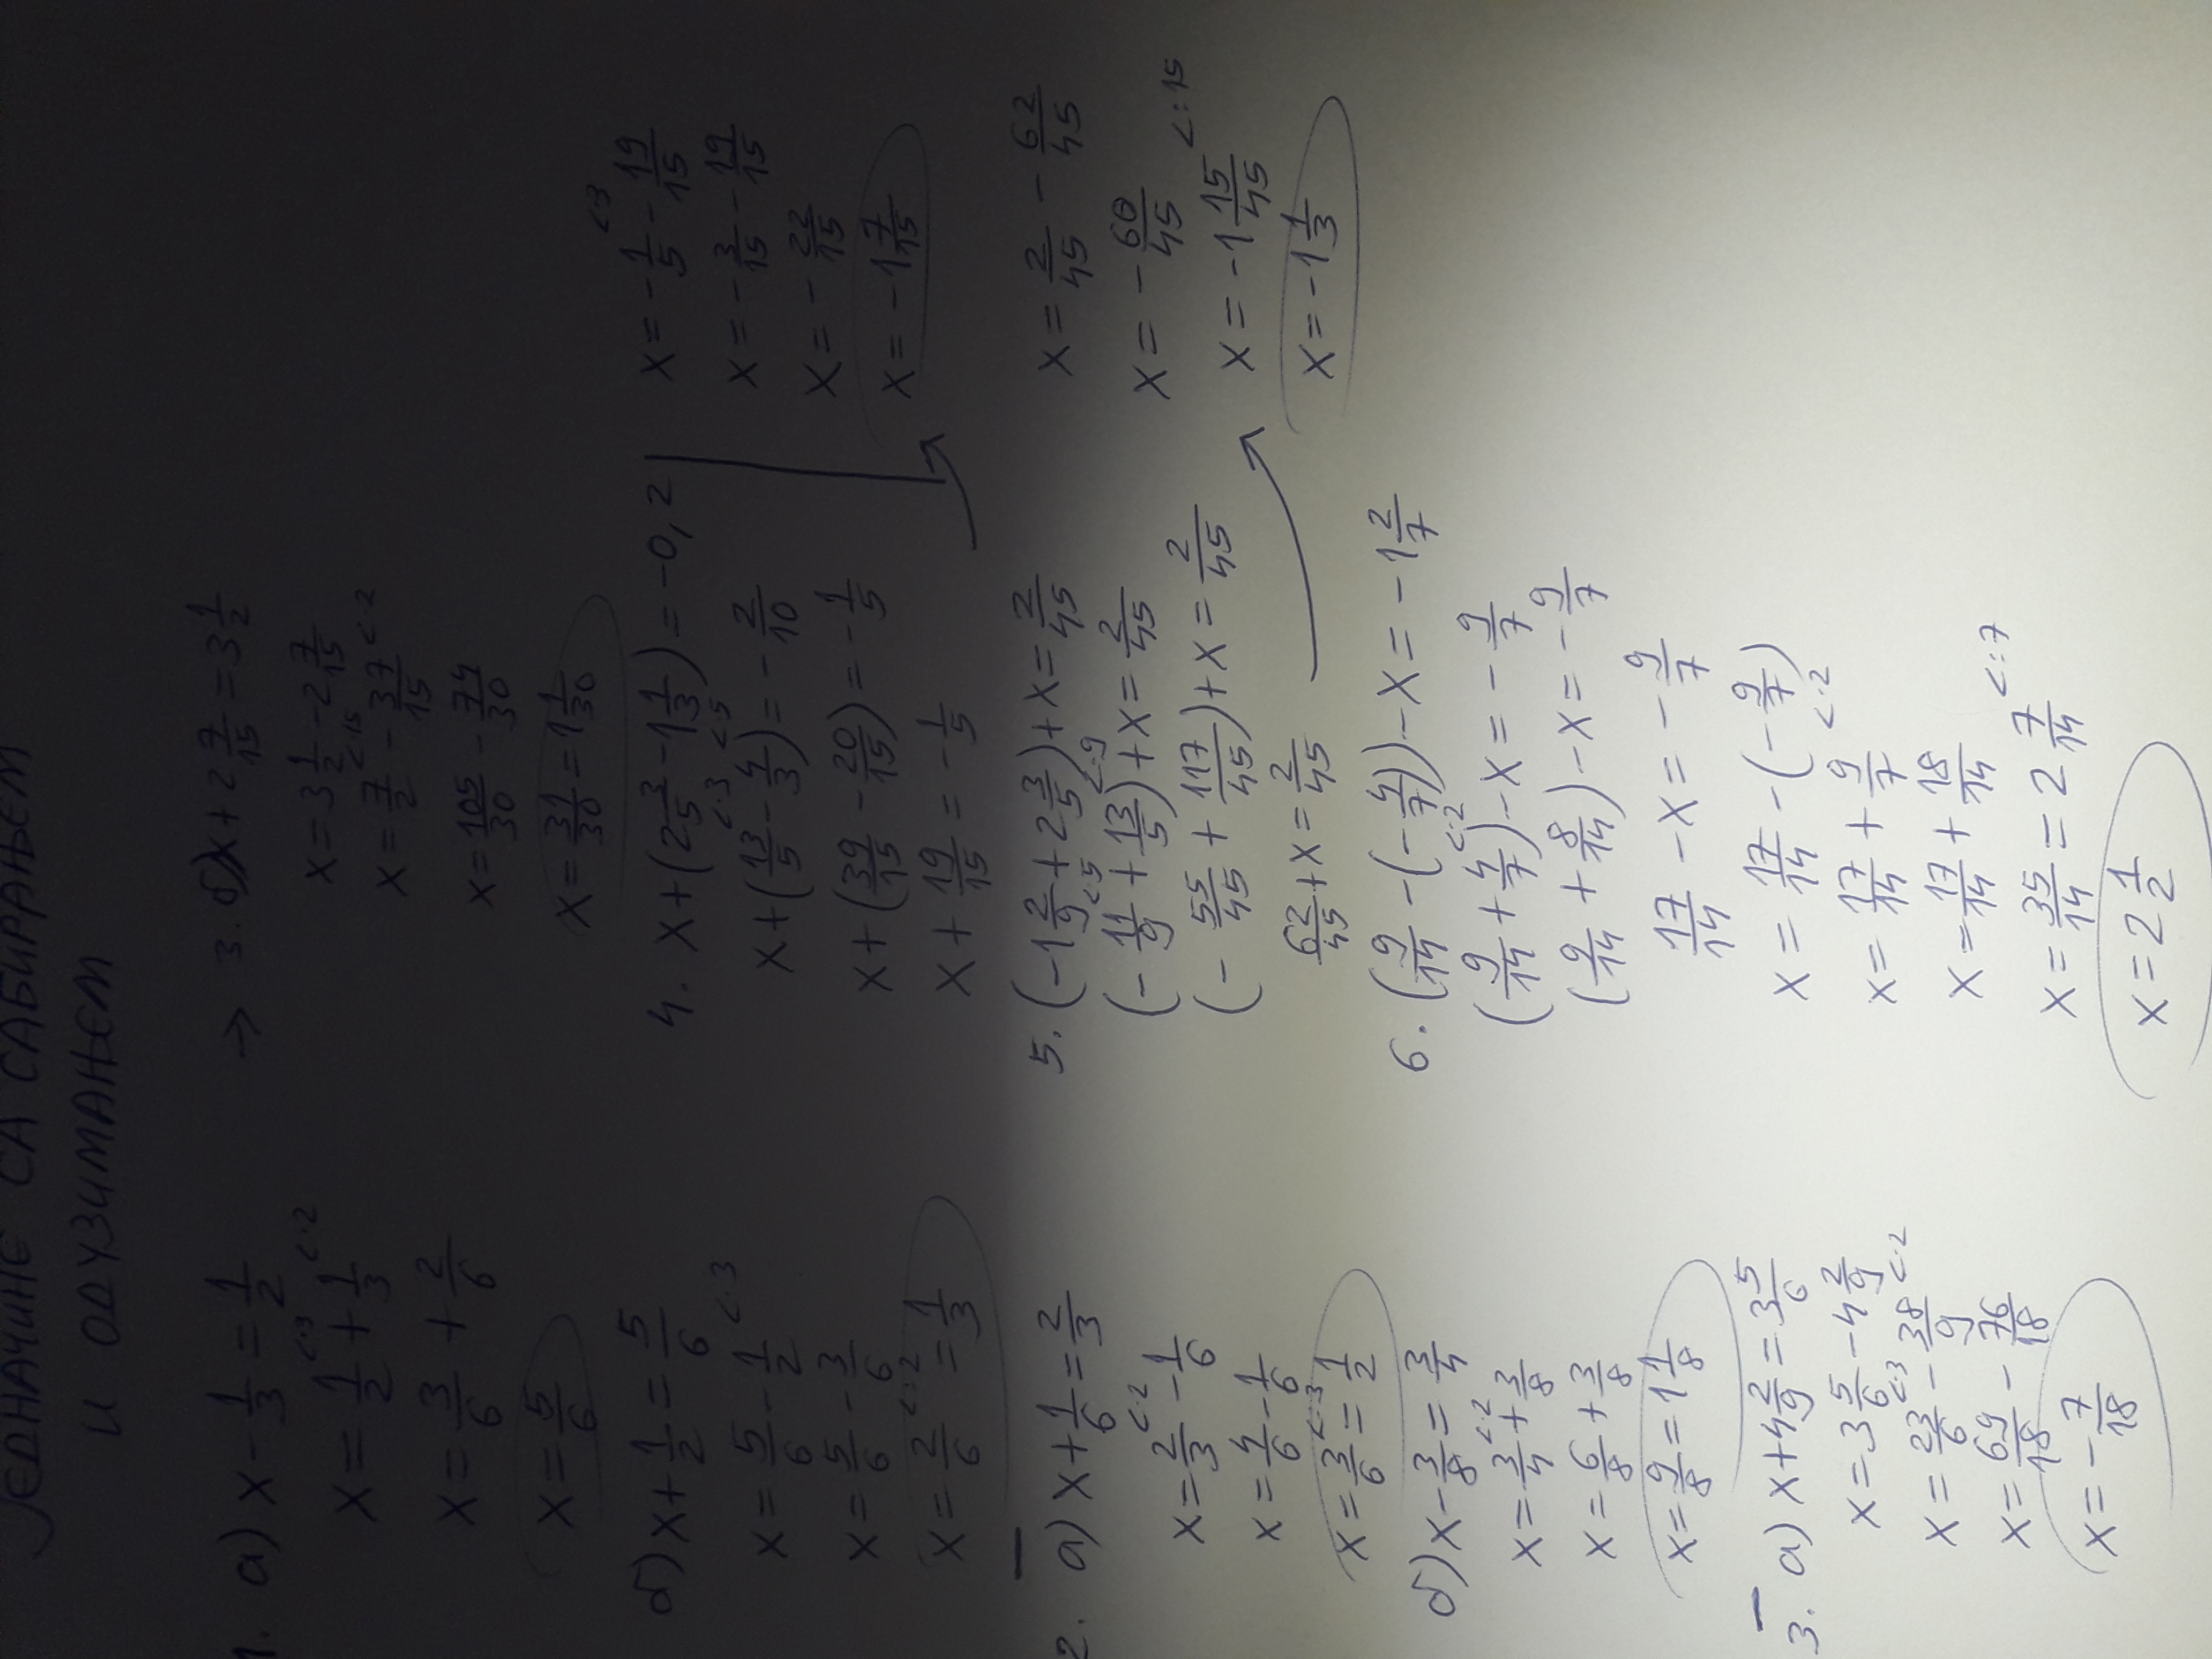 ЈЕДНАЧИНЕ СА САБИРАЊЕМ
И ОДУЗИМАЊЕМ
1. а) x - 1/3 = 1/2
x = 1/2 <·3 + 1/3 <·2
x = 3/6 + 2/6
x = 5/6
б) x + 1/2 = 5/6
x = 5/6 - 1/2 <·3
x = 5/6 - 3/6
x = 2/6 <:2 = 1/3
2. а) x + 1/6 = 2/3
x = 2/3 <·2 - 1/6
x = 4/6 - 1/6
x = 3/6 <:3 = 1/2
б) x - 3/8 = 3/4
x = 3/4 <·2 + 3/8
x = 6/8 + 3/8
x = 9/8 = 1 1/8
3. а) x + 4 2/9 = 3 5/6
x = 3 5/6 - 4 2/9
x = 23/6 <·3 - 38/9 <·2
x = 69/18 - 76/18
x = - 7/18
→ 3. б) x + 2 7/15 = 3 1/2
x = 3 1/2 - 2 7/15
x = 7/2 <·15 - 37/15 <·2
x = 105/30 - 74/30
x = 31/30 = 1 1/30
4. x + (2 3/5 - 1 1/3) = -0,2
x + (13/5 <·3 - 4/3 <·5) = - 2/10
x + (39/15 - 20/15) = - 1/5
x + 19/15 = - 1/5
x = - 1/5 <·3 - 19/15
x = - 3/15 - 19/15
x = - 22/15
x = -1 7/15
5. (-1 2/9 + 2 3/5) + x = 2/45
(- 11/9 <·5 + 13/5 <·9) + x = 2/45
(- 55/45 + 117/45) + x = 2/45
62/45 + x = 2/45
x = 2/45 - 62/45
x = - 60/45
x = -1 15/45 <:15
x = -1 1/3
6. (9/14 - (- 4/7)) - x = -1 2/7
(9/14 + 4/7 <·2) - x = - 9/7
(9/14 + 8/14) - x = - 9/7
17/14 - x = - 9/7
x = 17/14 - (- 9/7)
x = 17/14 + 9/7 <·2
x = 17/14 + 18/14
x = 35/14 = 2 7/14 <:7
x = 2 1/2